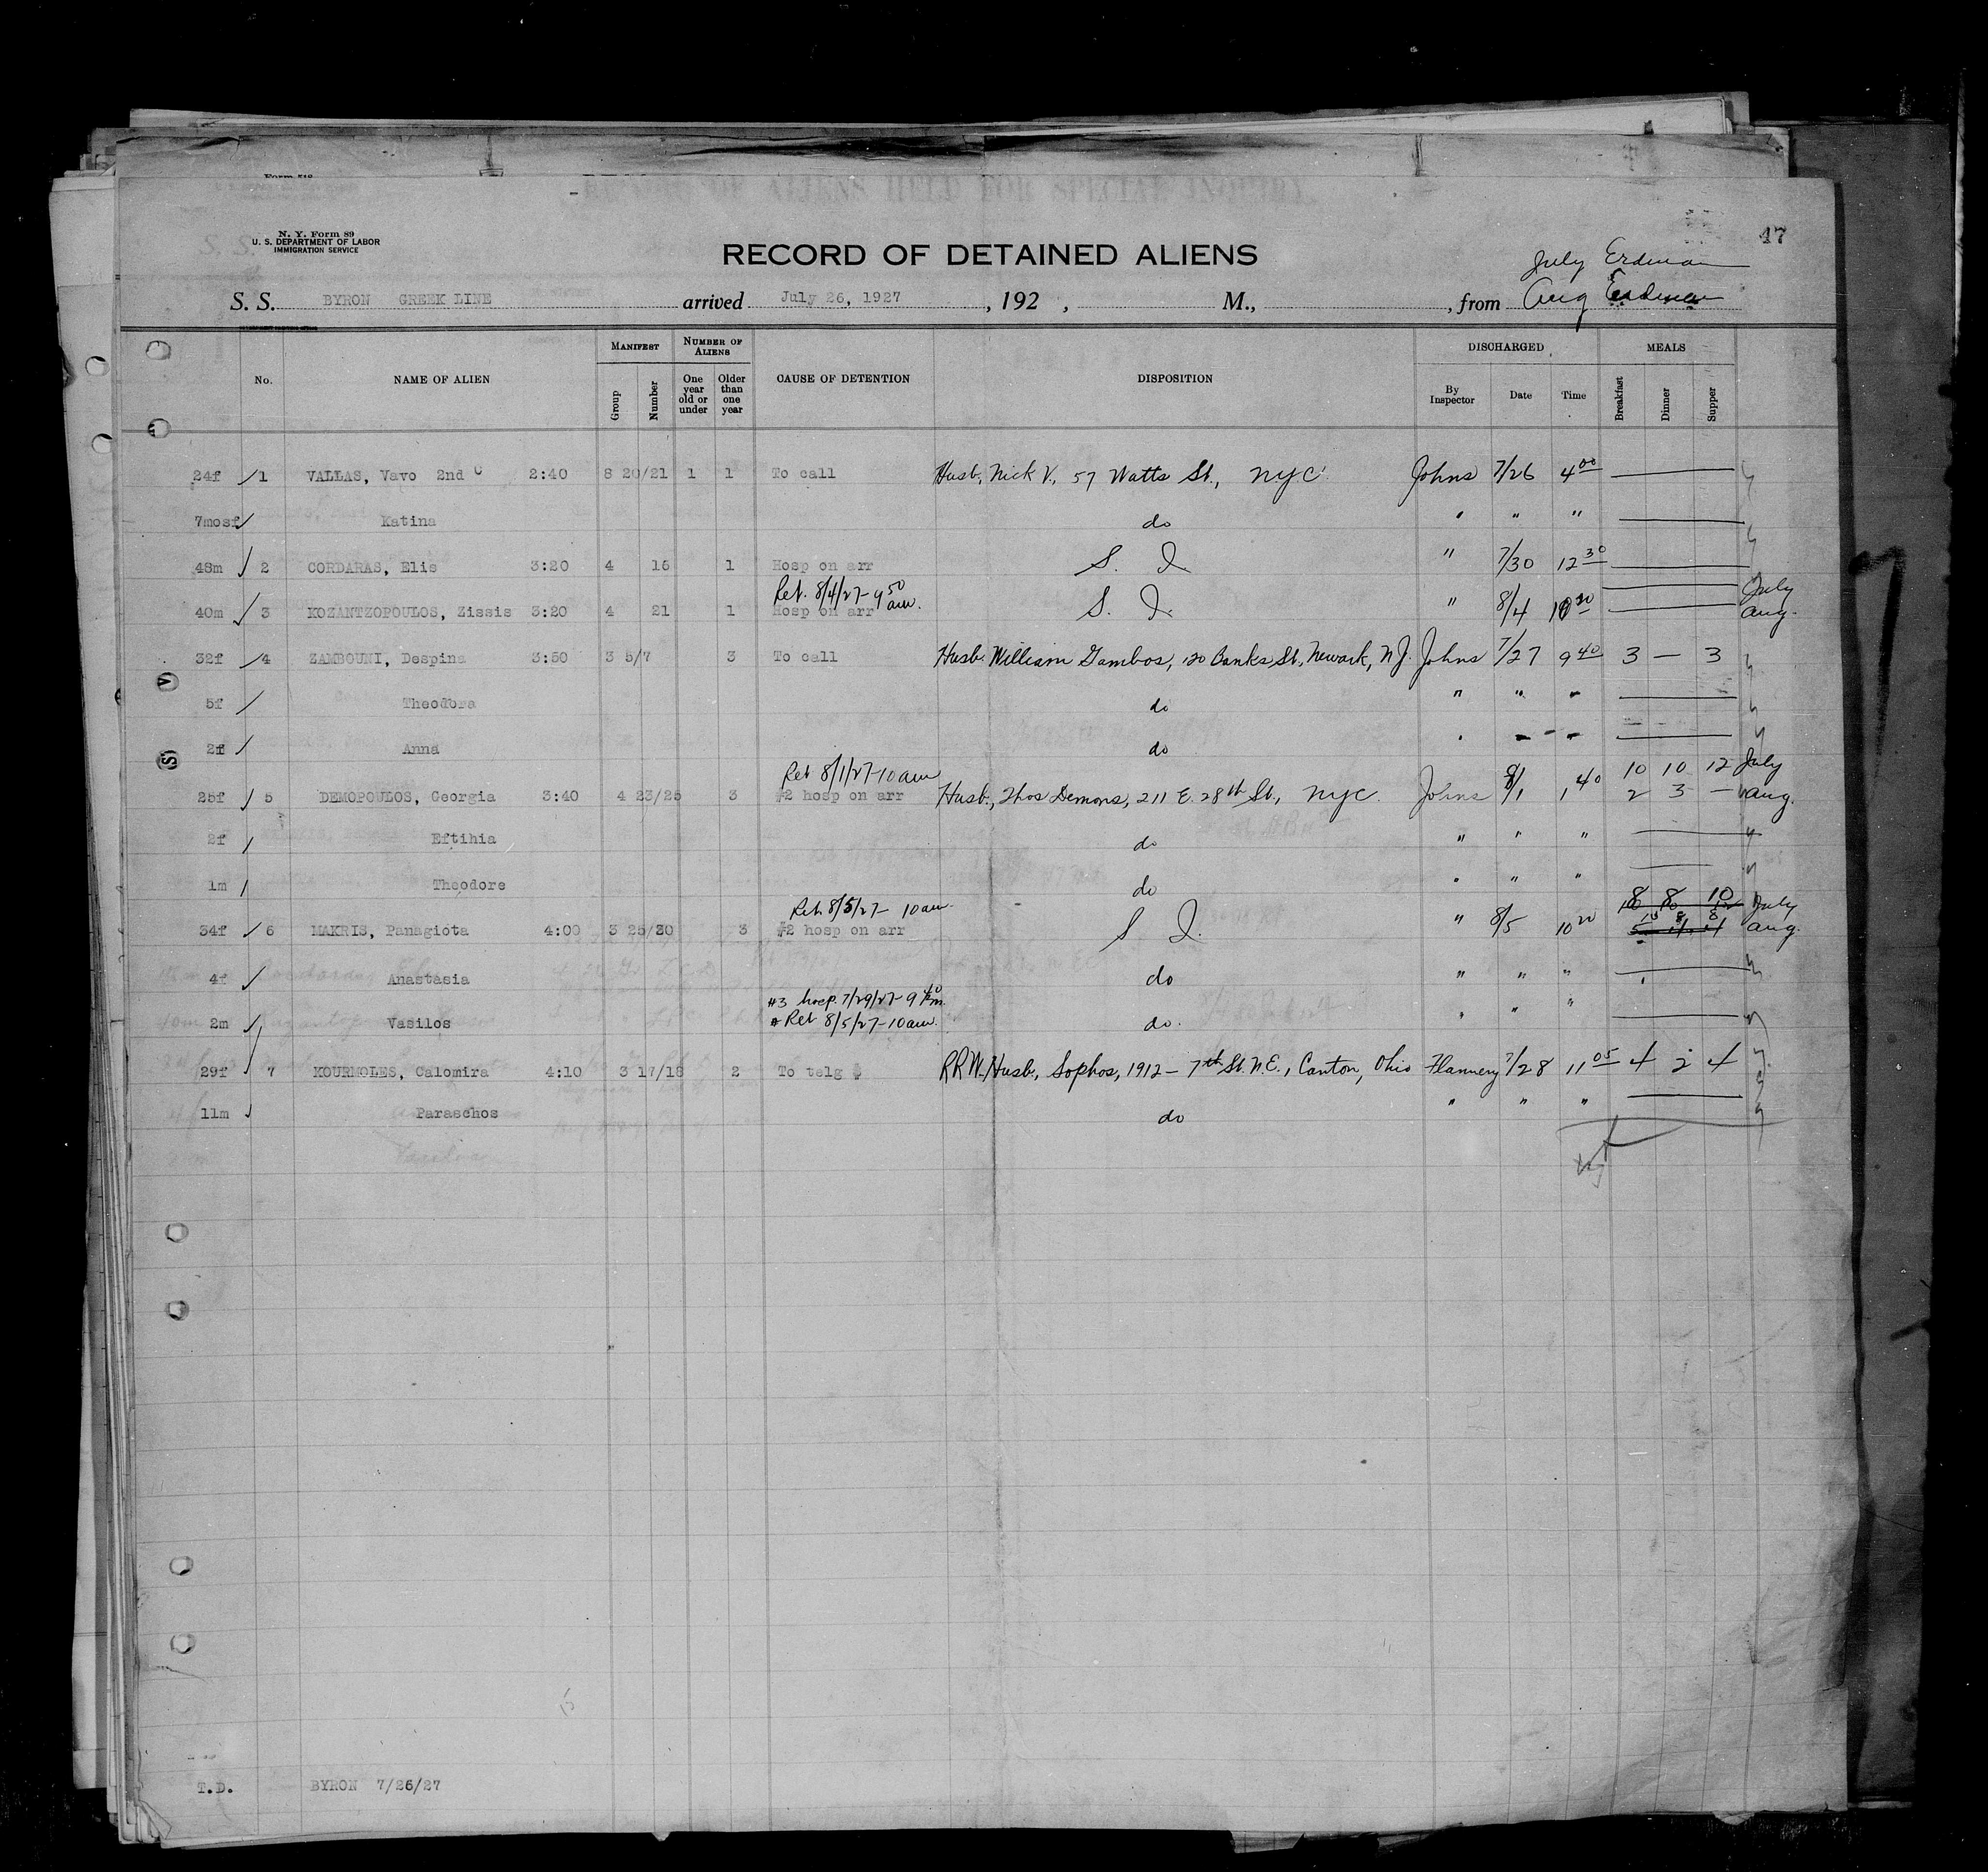 47
N. Y. Form 89
U. S. DEPARTMENT OF LABOR
IMMIGRATION SERVICE
RECORD OF DETAINED ALIENS
July Erdman
S. S. BYRON GREEK LINE arrived July 26, 1927, 192 , M., , from Aug Erdman
No. NAME OF ALIEN MANIFEST Group Number NUMBER OF ALIENS One year old or under Older than one year CAUSE OF DETENTION DISPOSITION DISCHARGED By Inspector Date Time MEALS Breakfast Dinner Supper
24f 1 VALLAS, Vavo 2nd C 2:40 8 20/21 1 1 To call Husb, Nick V., 57 Watts St., NYC Johns 7/26 4 00
7mosf Katina do " " "
48m 2 CORDARAS, Elie 3:20 4 16 1 Hosp on arr S. I. " 7/30 12 30
Ret. 8/4/27-9 50 am. July
40m 3 KOZANTZOPOULOS, Zissis 3:20 4 21 1 Hosp on arr S. I. " 8/4 Aug.
32f 4 ZAMBOUNI, Despina 3:50 3 5/7 3 To call Husb. William Gambos, 120 Banks St., Newark, N.J. Johns 7/27 9 40 3 — 3
5f Theodora do " " "
2f Anna do " " "
Ret 8/1/27-10am 10 10 12 July
25f 5 DEMOPOULOS, Georgia 3:40 4 23/25 3 #2 hosp on arr Husb., Thos Demons, 211 E. 28th St., NYC. Johns 8/1 1 40 2 3 — Aug.
2f Eftihia do " " "
1m Theodore do " " "
Ret. 8/5/27- 10am 8 8 10 July
34f 6 MAKRIS, Panagiota 4:00 3 25/30 3 #2 hosp on arr S I. " 8/5 10 20 Aug.
4f Anastasia do " " "
#3 hosp. 7/29/27-9 40
2m Vasilos Ret 8/5/27-10am. do. " " "
29f 7 KOURMOLES, Calomira 4:10 3 17/18 2 To telg $ RRW. Husb., Sophos, 1912- 7th St. N.E., Canton, Ohio Flannery 7/28 11 05 4 2 4
11m Paraschos do " " "
T.D. BYRON 7/26/27